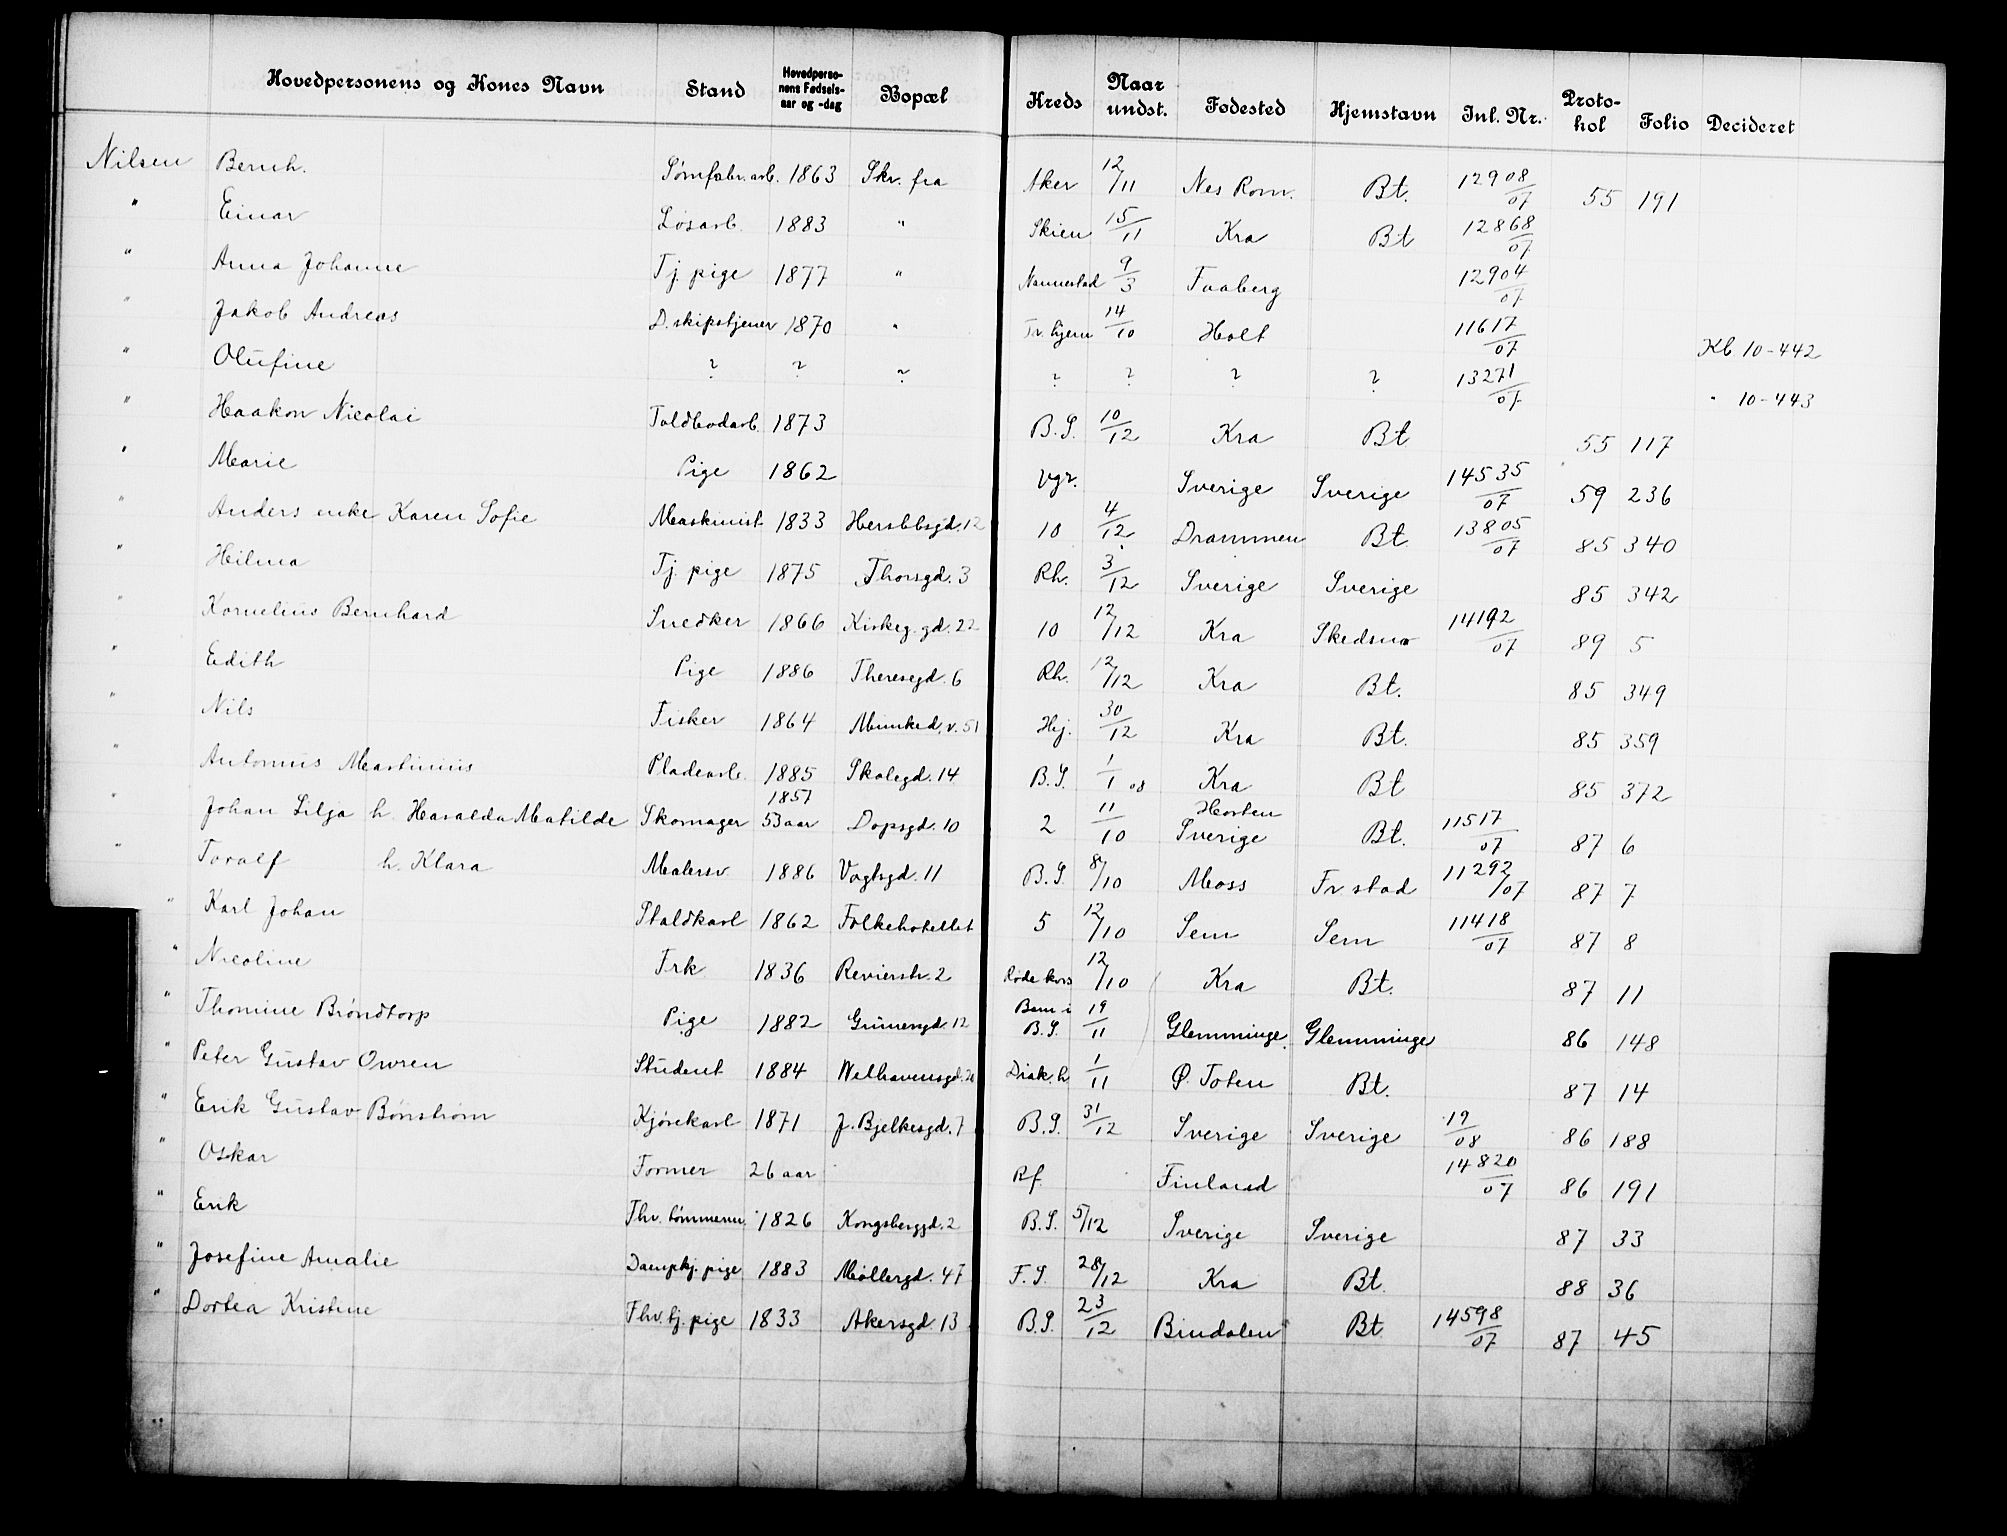 Hovedpersonens og Kones Navn Stand Hovedperso-nens Fødsels-aar og -dag Bopæl Kreds Naar undst. Fødested Hjemstavn Inl. Nr. Proto-kol Folio Decideret
Nilsen Bernh. Sømfabr. arb. 1863 Skr. fra Aker 12/11 Nes Rom. Bt. 12908/07 55 191
" Einar Løsarb. 1883 " Skien 15/11 Kra Bt 12868/07
" Anna Johanne Tj. pige 1877 " Nannestad 9/3 Faaberg 12904/07
" Jakob Andreas D.skipstjener 1870 " Tr. hjem 14/10 Holt 11617/07 Kb 10-442
" Olufine ? ? ? ? ? ? ? 13271/07 " 10-443
" Haakon Nicolai Toldbodarb. 1873 B.S. 10/12 Kra Bt 55 117
" Marie Pige 1862 Vgr. Sverige Sverige 14535/07 59 236
" Anders enke Karen Sofie Maskinist 1833 Herslebsgd. 12 10 4/12 Drammen Bt. 13805/07 85 340
" Hilma Tj. pige 1875 Thorsgd. 3 Rh. 3/12 Sverige Sverige 85 342
" Kornelius Bernhard Snedker 1866 Kirkeg. gd. 22 10 12/12 Kra Skedsmo 14192/07 89 5
" Edith Pige 1886 Theresegd. 6 Rh. 12/12 Kra Bt. 85 349
" Nils Fisker 1864 Munked. v. 51 Hej. 30/12 Kra Bt. 85 359
" Antonius Martinius Pladearb. 1885 Skolegd. 14 B.S. 1/1 08 Kra Bt 85 372
" Johan Lilja h. Haralda Matilde Skomager 1857 53 aar Dopsgd. 10 2 11/10 Horten Sverige Bt. 11517/07 87 6
" Toralf h. Klara Malersv. 1886 Vogtsgd. 11 B.S. 8/10 Moss Fr.stad 11292/07 87 7
" Karl Johan Staldkarl 1862 Folkehotellet 5 12/10 Sem Sem 11418/07 87 8
" Nicoline Frk 1836 Revierstr. 2 Røde kors 12/10 Kra Bt. 87 11
" Thomine Brøndtorp Pige 1882 Grünersgd. 12 Barn i B.S. 19/11 Glemminge Glemminge 86 148
" Peter Gustav Owren Student 1884 Welhavensgd. Diak. h 1/11 Ø. Toten Bt. 87 14
" Erik Gustav Bönström Kjørekarl 1871 J. Bjelkesgd. 7 B.S. 31/12 Sverige Sverige 19/08 86 188
" Oskar Former 26 aar Rf. Finland 14820/07 86 191
" Erik Fhv. tømmerm. 1826 Kongsberggd. 2 B.S. 5/12 Sverige Sverige 87 33
" Josefine Amalie Dampkj. pige 1883 Møllergd. 47 F.S. 28/12 Kra Bt. 88 36
" Dortea Kristine Fhv. tj. pige 1833 Akersgd. 13 B.S. 23/12 Bindalen Bt. 14598/07 87 45